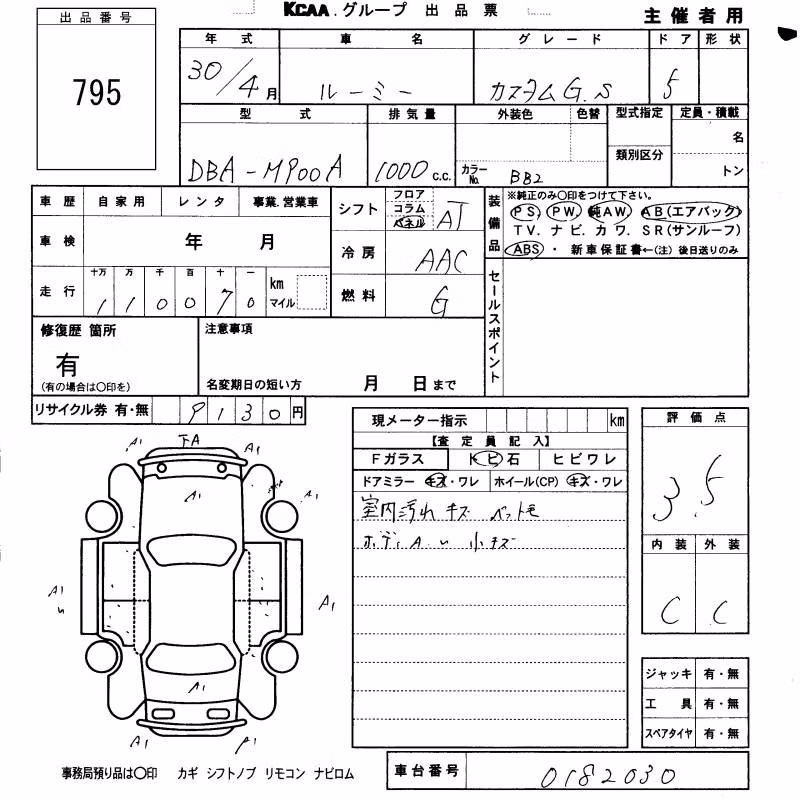 KCAA.グループ 出品票
主催者用
出品番号
795
年式 車名 グレード ドア 形状
30/4月 ルーミー カスタムG.S 5
型式 排気量 外装色 色替 型式指定 定員・積載
名
類別区分
DBA-M900A 1000c.c. カラーNo. BB2 トン
車歴 自家用 レンタ 事業.営業車
シフト フロア コラム パネル AT
車検 年 月
冷房 AAC
走行 十万 万 千 百 十 一 km マイル
110070
燃料 G
装備品
※純正のみ〇印をつけて下さい。
PS, PW, 純AW, AB(エアバック)
TV. ナビ. カワ. SR(サンルーフ)
ABS・ 新車保証書←(注)後日送りのみ
セールスポイント
修復歴 箇所
有
(有の場合は〇印を)
注意事項
名変期日の短い方 月 日まで
リサイクル券 有・無 9130円
現メーター指示 km
【査定員記入】
Fガラス トビ石 ヒビワレ
ドアミラー キズ・ワレ ホイール(CP) キズ・ワレ
室内汚れ キズ ペット毛
ボディ A.U 小キズ
評価点
3.5
内装 外装
C C
ジャッキ 有・無
工具 有・無
スペアタイヤ 有・無
A1 下A A1
A1 A1
A1 U A1
A1
A1
事務局預り品は〇印 カギ シフトノブ リモコン ナビロム
車台番号 0182030